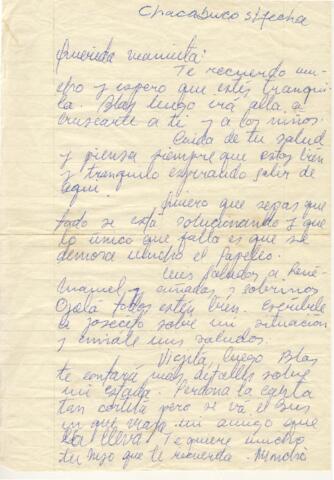 Chacabuco s/fecha
Querida mamita:
Te recuerdo mu-
cho y espero que estés tranqui-
la. Blas luego irá allá a
buscarte a ti y a los niños.
Cuida de tu salud
y piensa siempre que estoy bien
y tranquilo esperando salir de
aquí.
Quiero que sepas que
todo se está solucionando y que
lo único que falta es que se
demora mucho el papeleo.
Mis saludos a René
Manuel y cuñadas y sobrinos
Ojalá todos estén bien. Escríbele
a Josecito sobre mi situación
y envíale mis saludos.
Viejita, luego Blas
te contará más detalles sobre
mi estada. Perdona la carta
tan cortita pero se vá el bus
en que viaja un amigo que
la lleva. Te quiere mucho
tu hijo que te recuerda.